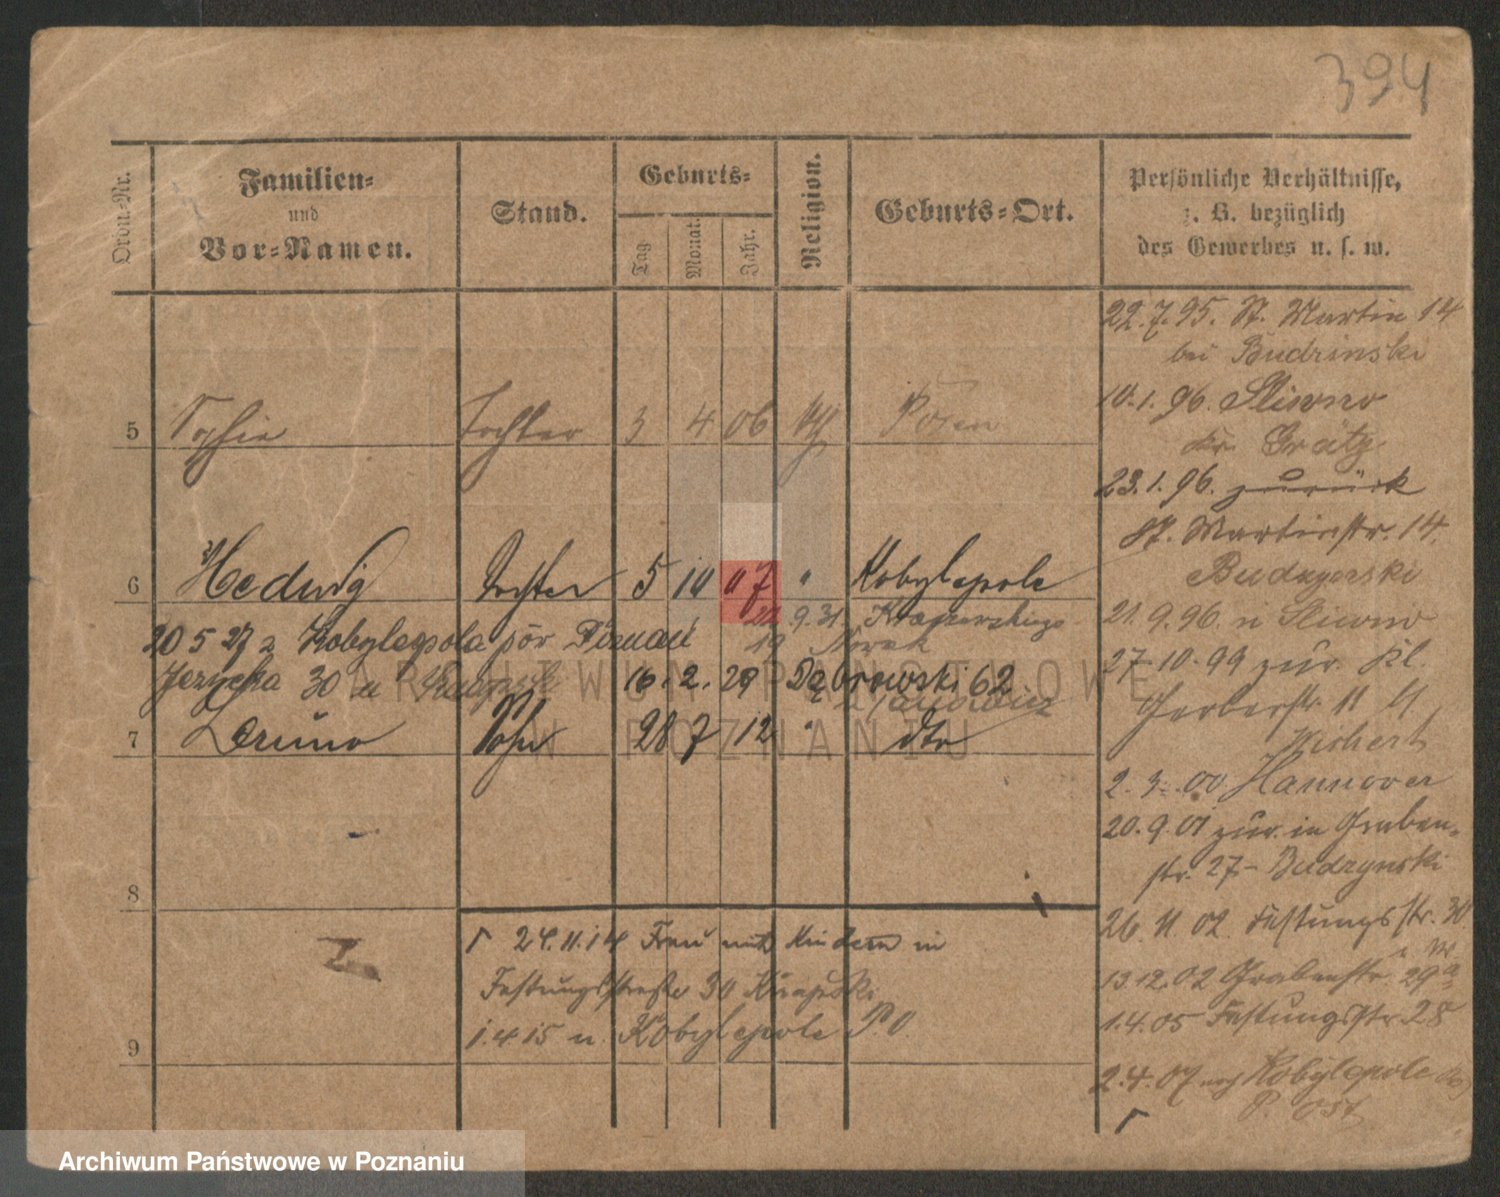 394
Ordn.-Nr.
Familien-
und
Vor-Namen.
Stand.
Geburts-
Tag
Monat.
Jahr.
Religion.
Geburts-Ort.
Persönliche Verhältnisse,
z. B. bezüglich
des Gewerbes u. s. w.
5 Sophie Tochter 3 4 06 Posen
6 Hedwig Tochter 5 10 07 " Kobylepole
20 5 27 z Kobylepola
22.9.31.
19 Nowak
30 16.2.29 Dąbrowski 62
7 Bruno Sohn 28 7 12 " dto
8
24.11.14 Frau mit Kindern in
Festungsstraße 30
1.4.15 n. Kobylepole P.O.
9
22.7.95. St. Martin 14
bei Budzinski
10.1.96. Sliwno
Kr. Grätz
23.1.96. zurück
St. Martinstr. 14.
21.9.96. n Sliwno
27.10.99 zur. Kl.
Gerberstr. 11
2.3.00 Hannover
20.9.01 zur. in Graben-
str. 27- Budzynski
26.11.02 Festungsstr. 30
13.12.02 Grabenstr. 29
1.4.05 Festungsstr. 28
2.4.07 Kobylepole
P. Ost
ARCHIWUM PAŃSTWOWE
W POZNANIU
Archiwum Państwowe w Poznaniu